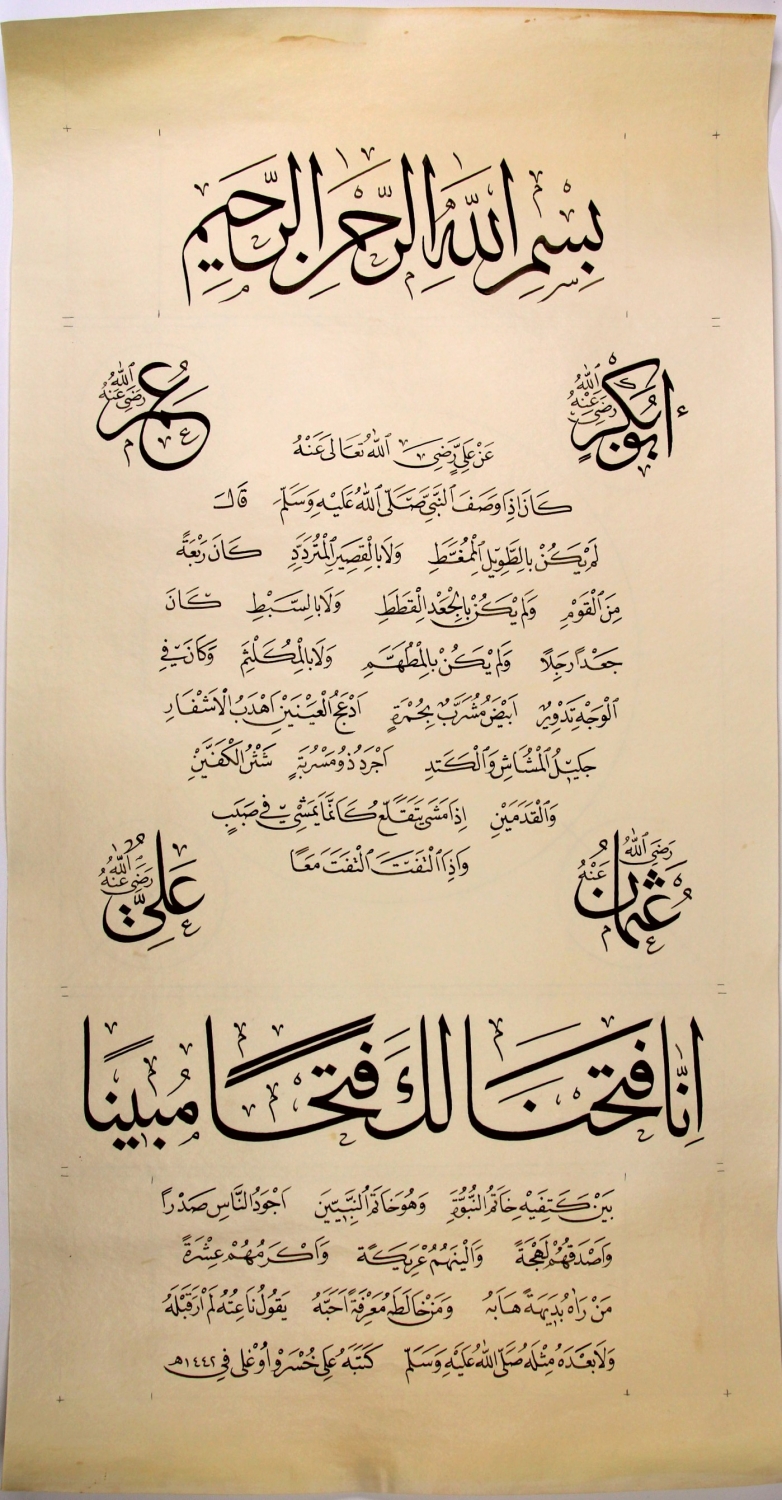 بِسْمِ اللَّهِ الرَّحْمٰنِ الرَّحِيمِ
أَبُو بَكْرٍ رَضِيَ اللّٰهُ عَنْهُ
عُمَرُ رَضِيَ اللّٰهُ عَنْهُ
عَنْ عَلِيٍّ رَضِيَ اللّٰهُ تَعَالَى عَنْهُ
كَانَ اِذَا وَصَفَ النَّبِيَّ صَلَّى اللّٰهُ عَلَيْهِ وَسَلَّمَ قَالَ
لَمْ يَكُنْ بِالطَّوِيلِ الْمُمَّغَطِ وَلَا بِالْقَصِيرِ الْمُتَرَدِّدِ كَانَ رَبْعَةً
مِنَ الْقَوْمِ وَلَمْ يَكُنْ بِالْجَعْدِ الْقَطَطِ وَلَا بِالسَّبْطِ كَانَ
جَعْدًا رَجِلًا وَلَمْ يَكُنْ بِالْمُطَهَّمِ وَلَا بِالْمُكَلْثَمِ وَكَانَ فِي
الْوَجْهِ تَدْوِيرٌ اَبْيَضُ مُشْرَبٌ بِحُمْرَةٍ اَدْعَجُ الْعَيْنَيْنِ اَهْدَبُ الْاَشْفَارِ
جَلِيلُ الْمُشَاشِ وَالْكَتَدِ اَجْرَدُ ذُو مَسْرُبَةٍ شَثْنُ الْكَفَّيْنِ
وَالْقَدَمَيْنِ اِذَا مَشَى يَتَقَلَّعُ كَاَنَّمَا يَمْشِي فِي صَبَبٍ
وَاِذَا الْتَفَتَ الْتَفَتَ مَعًا
عُثْمَانُ رَضِيَ اللّٰهُ عَنْهُ
عَلِيٌّ رَضِيَ اللّٰهُ عَنْهُ
اِنَّا فَتَحْنَا لَكَ فَتْحًا مُبِينًا
بَيْنَ كَتِفَيْهِ خَاتَمُ النُّبُوَّةِ وَهُوَ خَاتَمُ النَّبِيِّينَ اَجْوَدُ النَّاسِ صَدْرًا
وَاَصْدَقُهُمْ لَهْجَةً وَاَلْيَنُهُمْ عَرِيكَةً وَاَكْرَمُهُمْ عِشْرَةً
مَنْ رَاٰهُ بَدِيهَةً هَابَهُ وَمَنْ خَالَطَهُ مَعْرِفَةً اَحَبَّهُ يَقُولُ نَاعِتُهُ لَمْ اَرَ قَبْلَهُ
وَلَا بَعْدَهُ مِثْلَهُ صَلَّى اللّٰهُ عَلَيْهِ وَسَلَّمَ كَتَبَهُ عَلِي خُسْرَوْ اُوْغْلِي فِي ١٤٤٢هـ